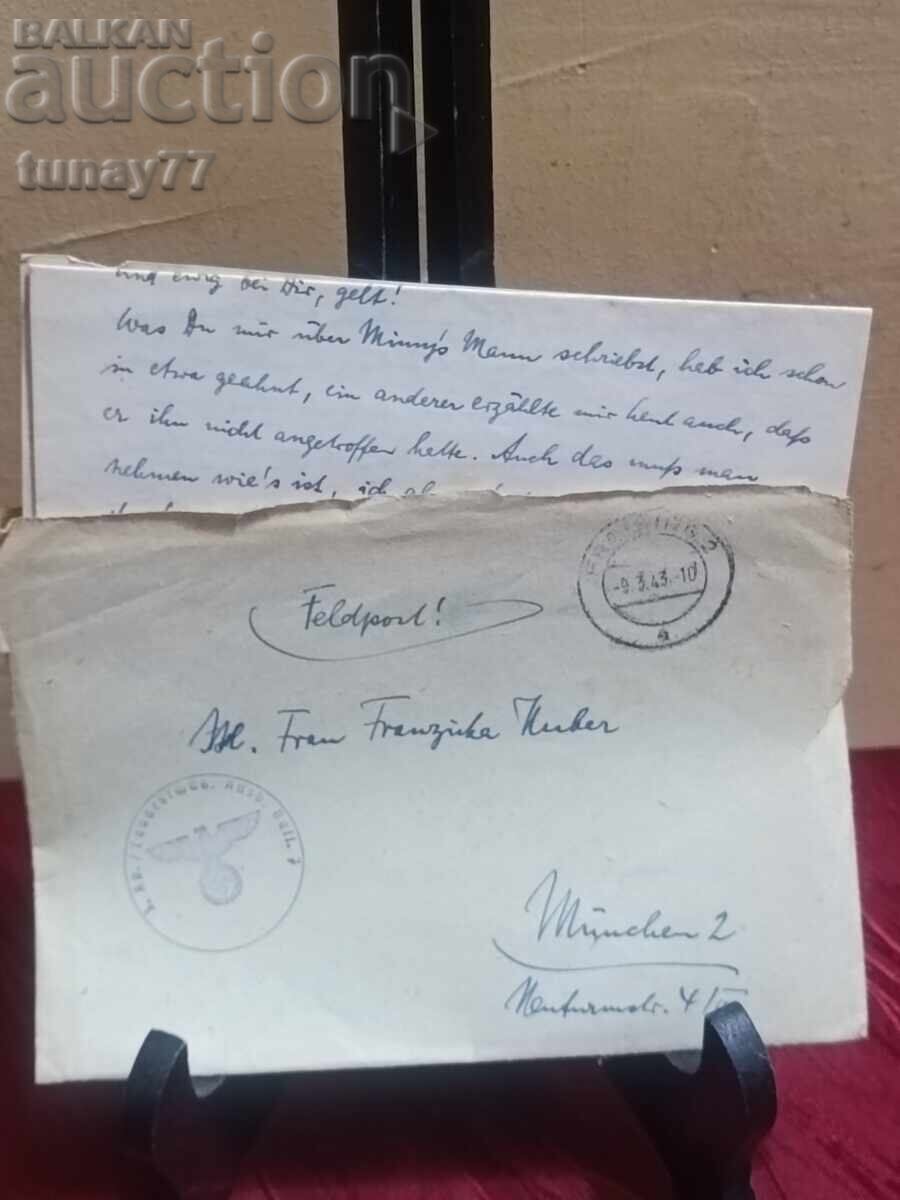 BALKAN
auction
tunay77
und ewig bei Dir, gelt!
Was Du mir über Minny's Mann schriebst, hab ich schon
in etwa geahnt, ein anderer erzählte mir heut auch, daß
er ihn nicht angetroffen hätte. Auch das muß man
nehmen wie's ist, ich
-9.3.43.-10
a
Feldpost!
Frau Franziska Huber
Landesschtz. Ausb. Batl.
München 2
Neuturmstr. 4/